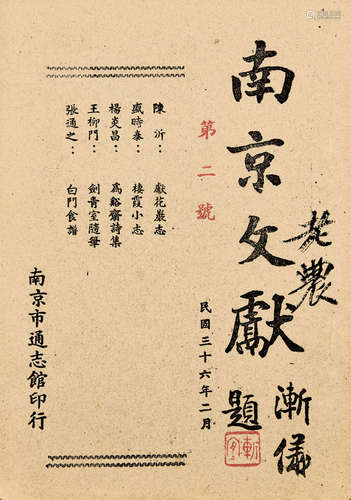 南京文獻
老農
漸儀
題
第二號
民國三十六年二月
陳沂：獻花巖志
盛時泰：棲霞小志
楊炎昌：爲谿齋詩集
王柳門：劍青室隨筆
張通之：白門食譜
南京市通志館印行